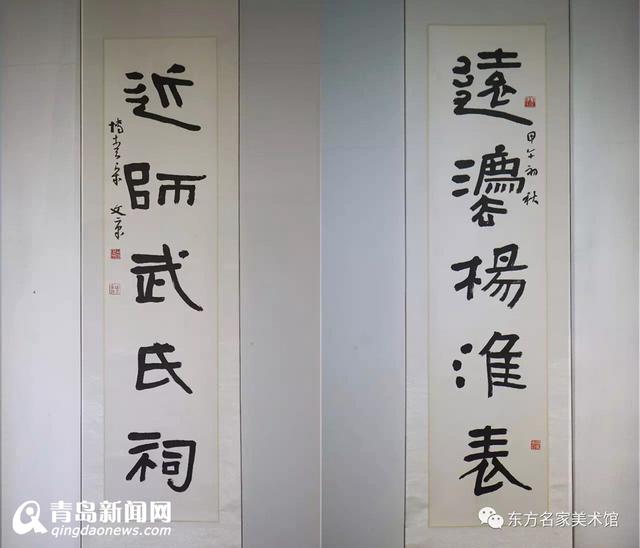 遠灋楊淮表
甲午初秋
近師武氏祠
青岛新闻网
qingdaonews.com
东方名家美术馆